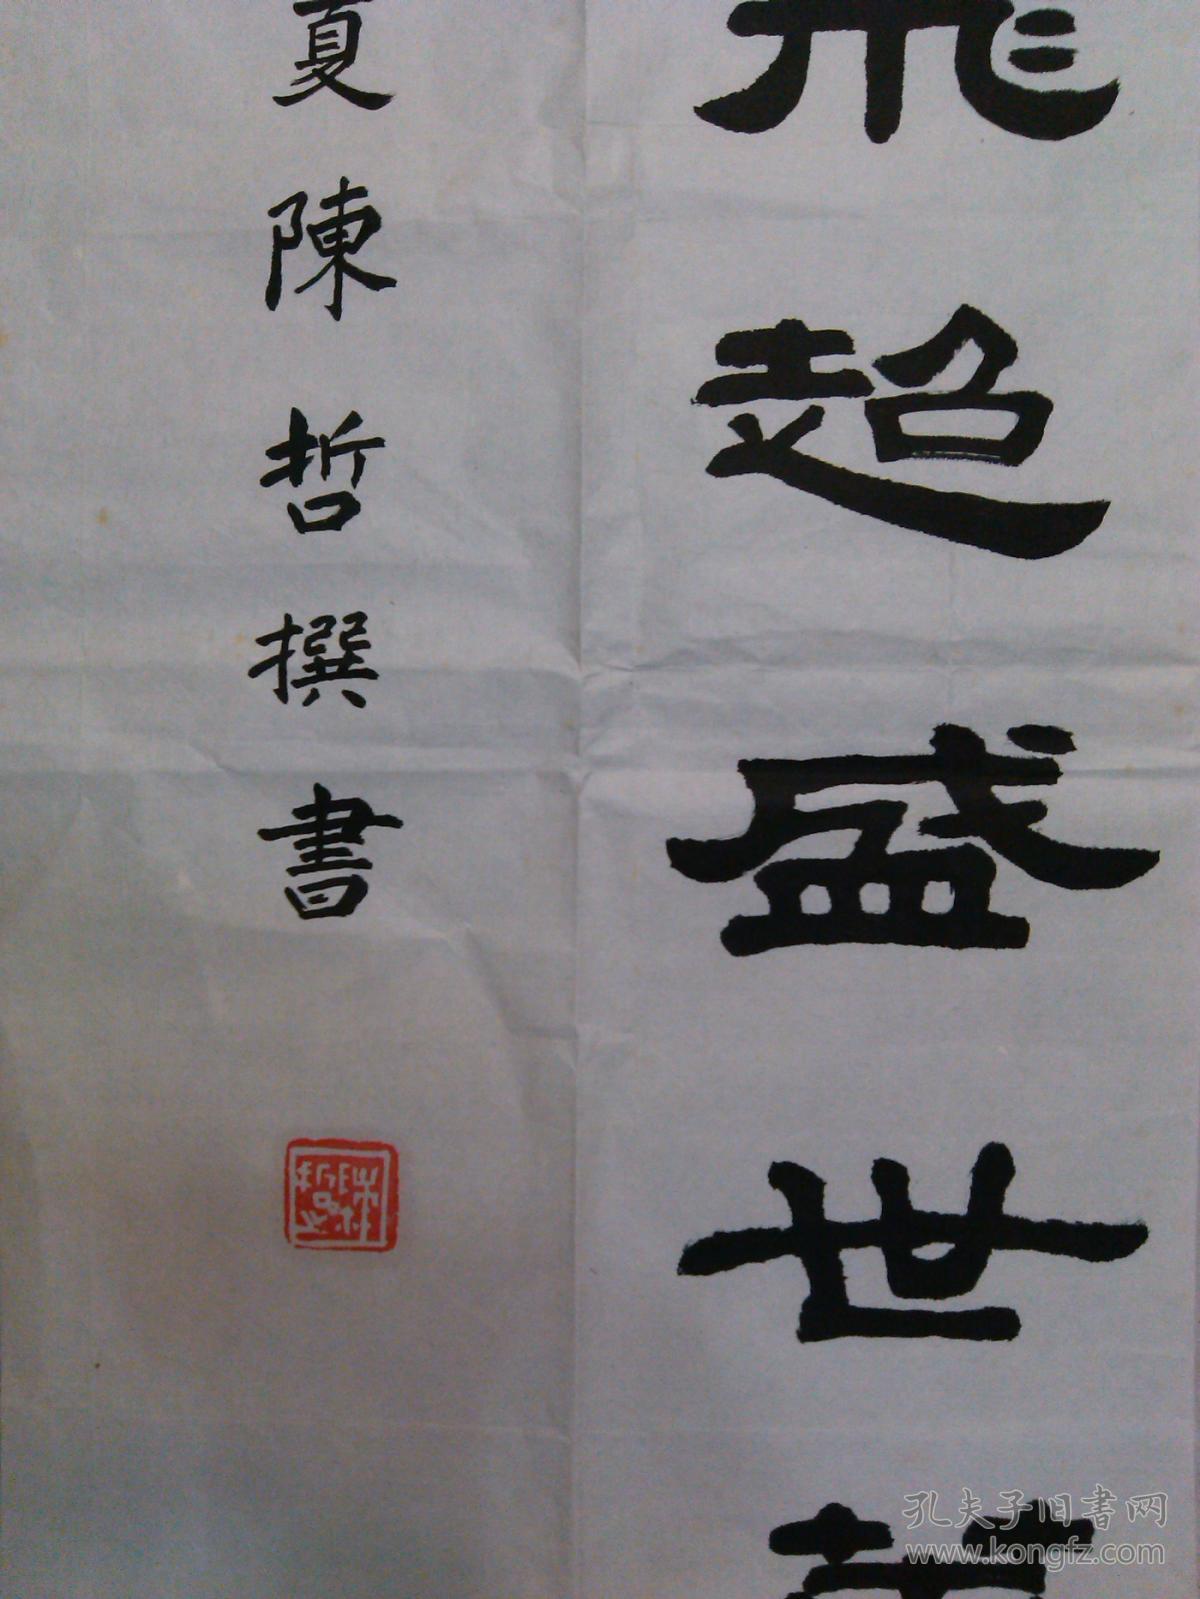 飛超盛世
夏陳哲撰書
孔夫子旧书网
www.kongfz.com